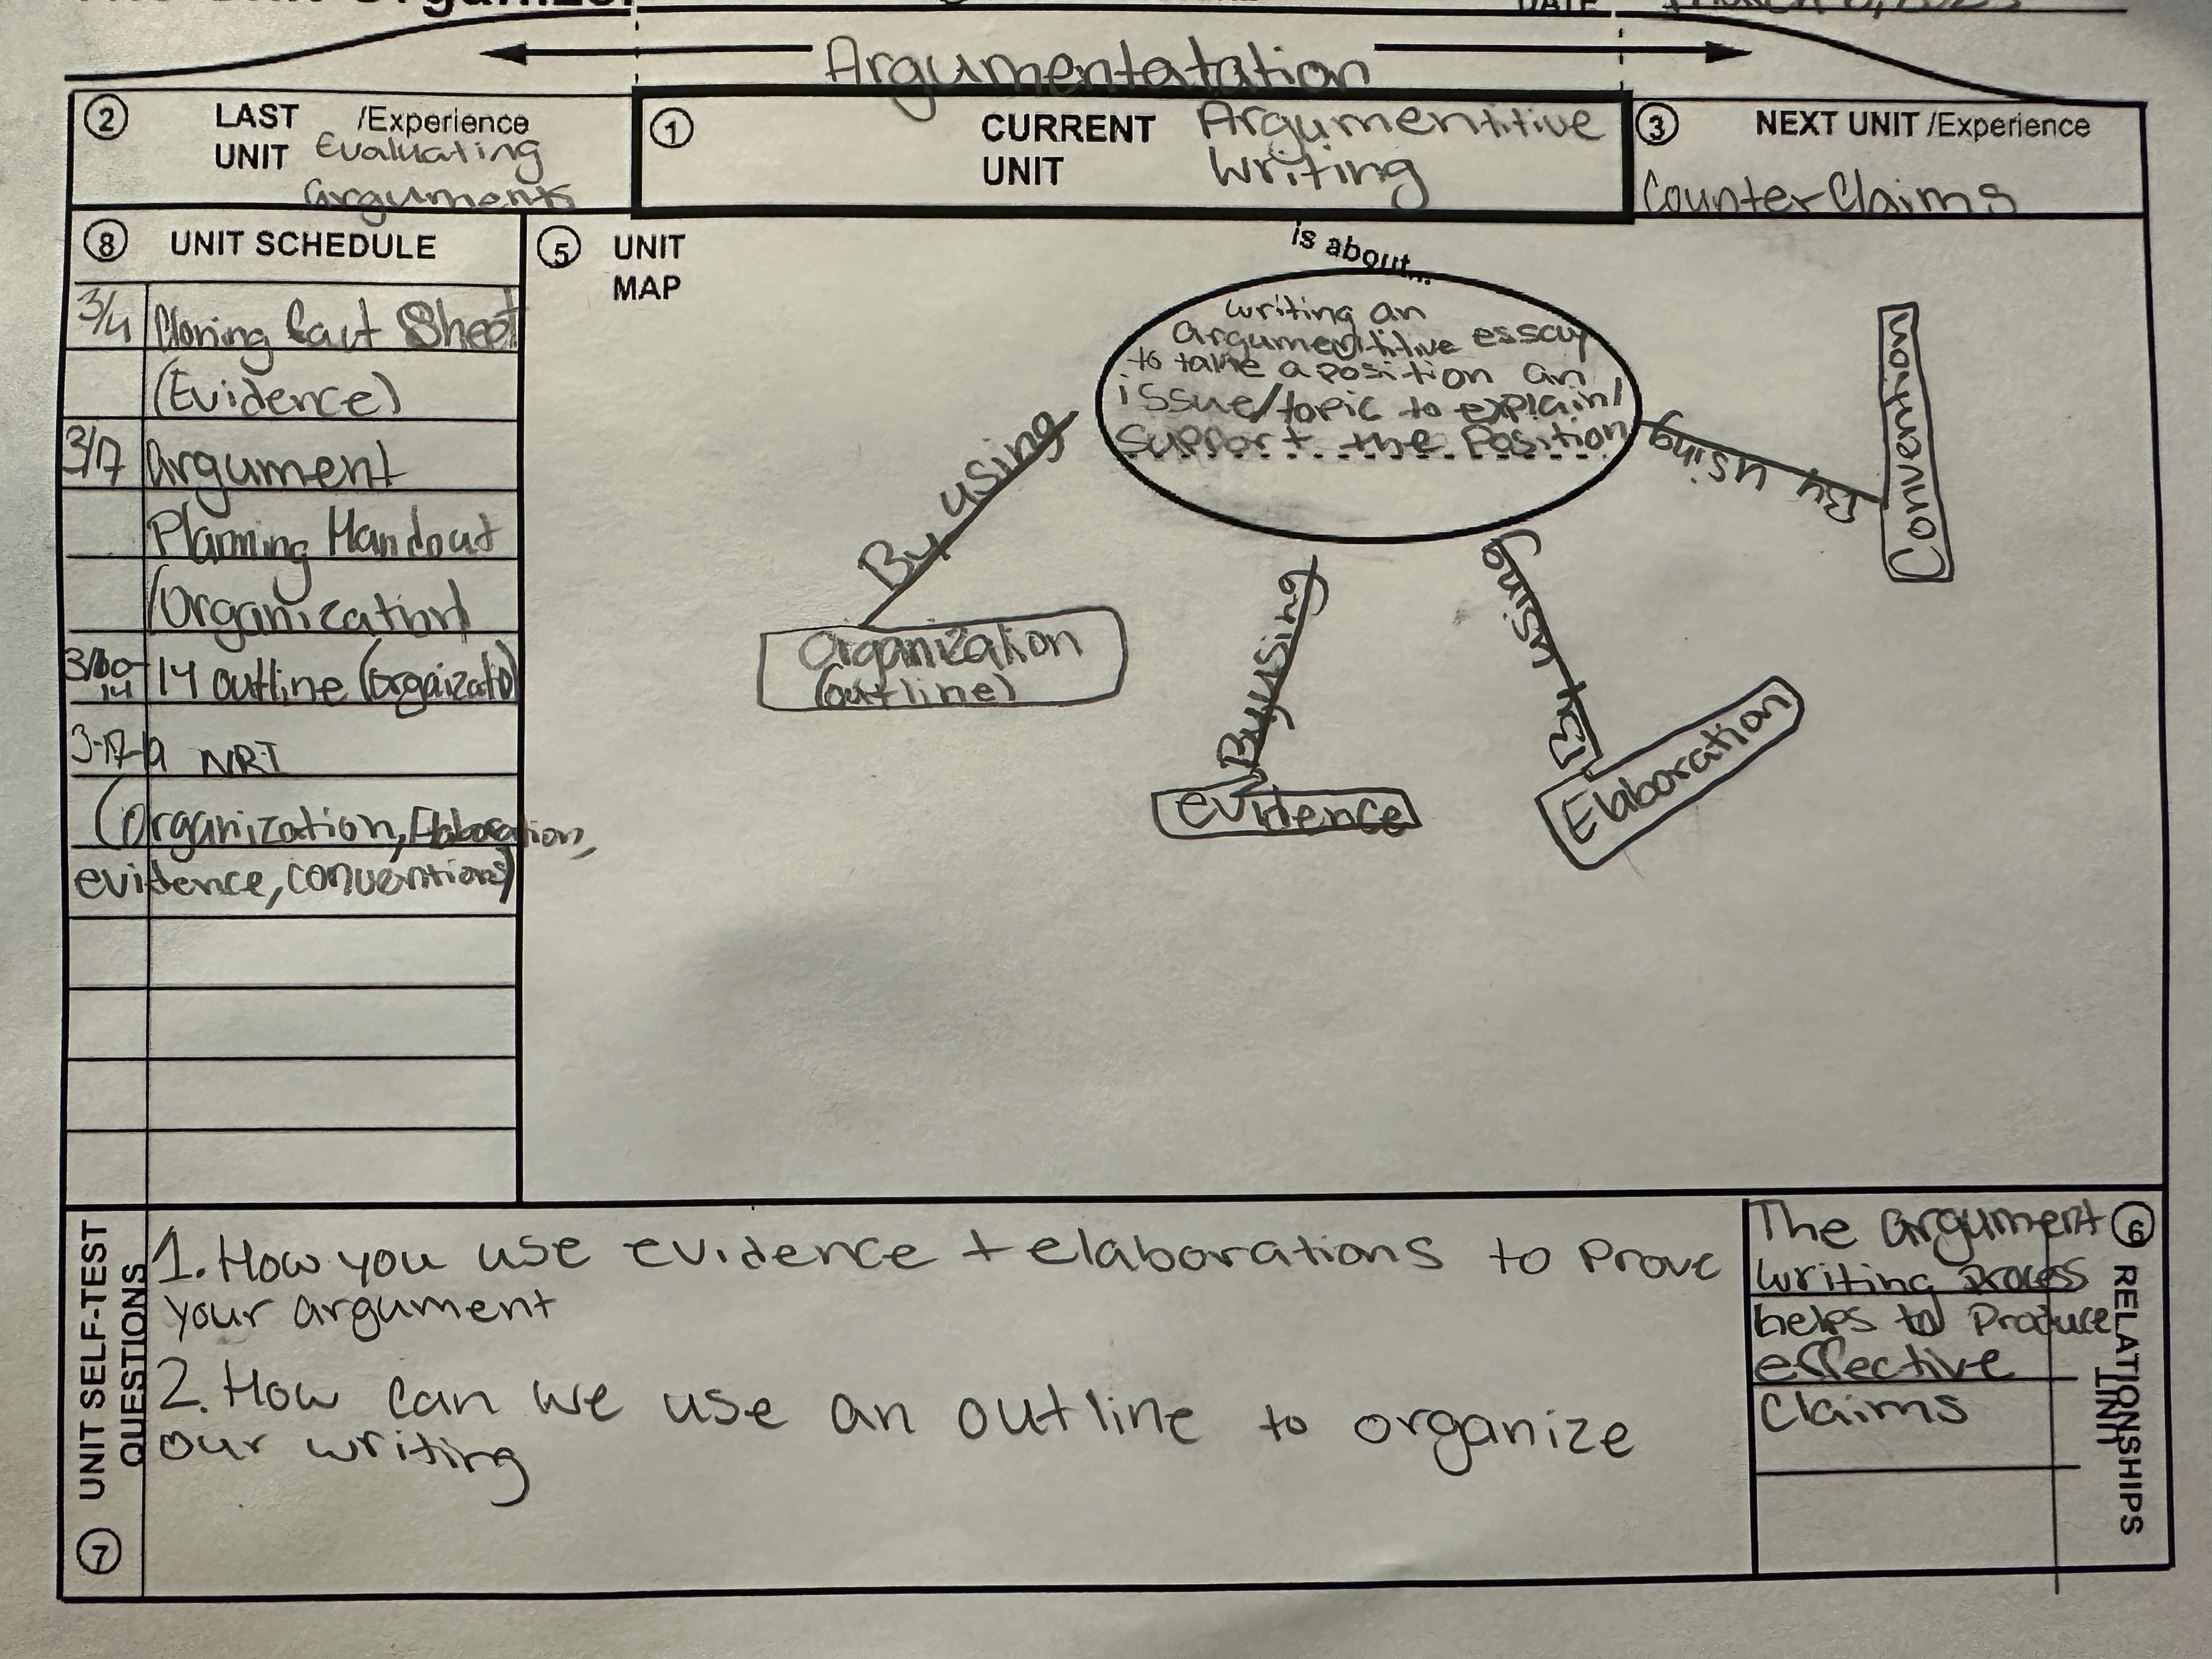 DATE
Argumentatation
② LAST UNIT /Experience
Evaluating
arguments
① CURRENT UNIT
Argumentitive
Writing
③ NEXT UNIT /Experience
CounterClaims
⑧ UNIT SCHEDULE
3/4 Cloning fact Sheet
(Evidence)
3/7 argument
Planning Handout
(Organization)
14 outline (orgaizato)
NRI
(Organization, Elaboration,
evidence, conventions)
⑤ UNIT MAP
is about...
writing an
argumentitive essay
to take a position an
issue/topic to explain/
Support the Position
By using
Organization
(outline)
By using
evidence
By using
Elaboration
By using
Convention
⑦ UNIT SELF-TEST QUESTIONS
1. How you use evidence + elaborations to Prove
your argument
2. How can we use an outline to organize
our writing
The argument
writing process
helps to Produce
effective
Claims
⑥ UNIT RELATIONSHIPS